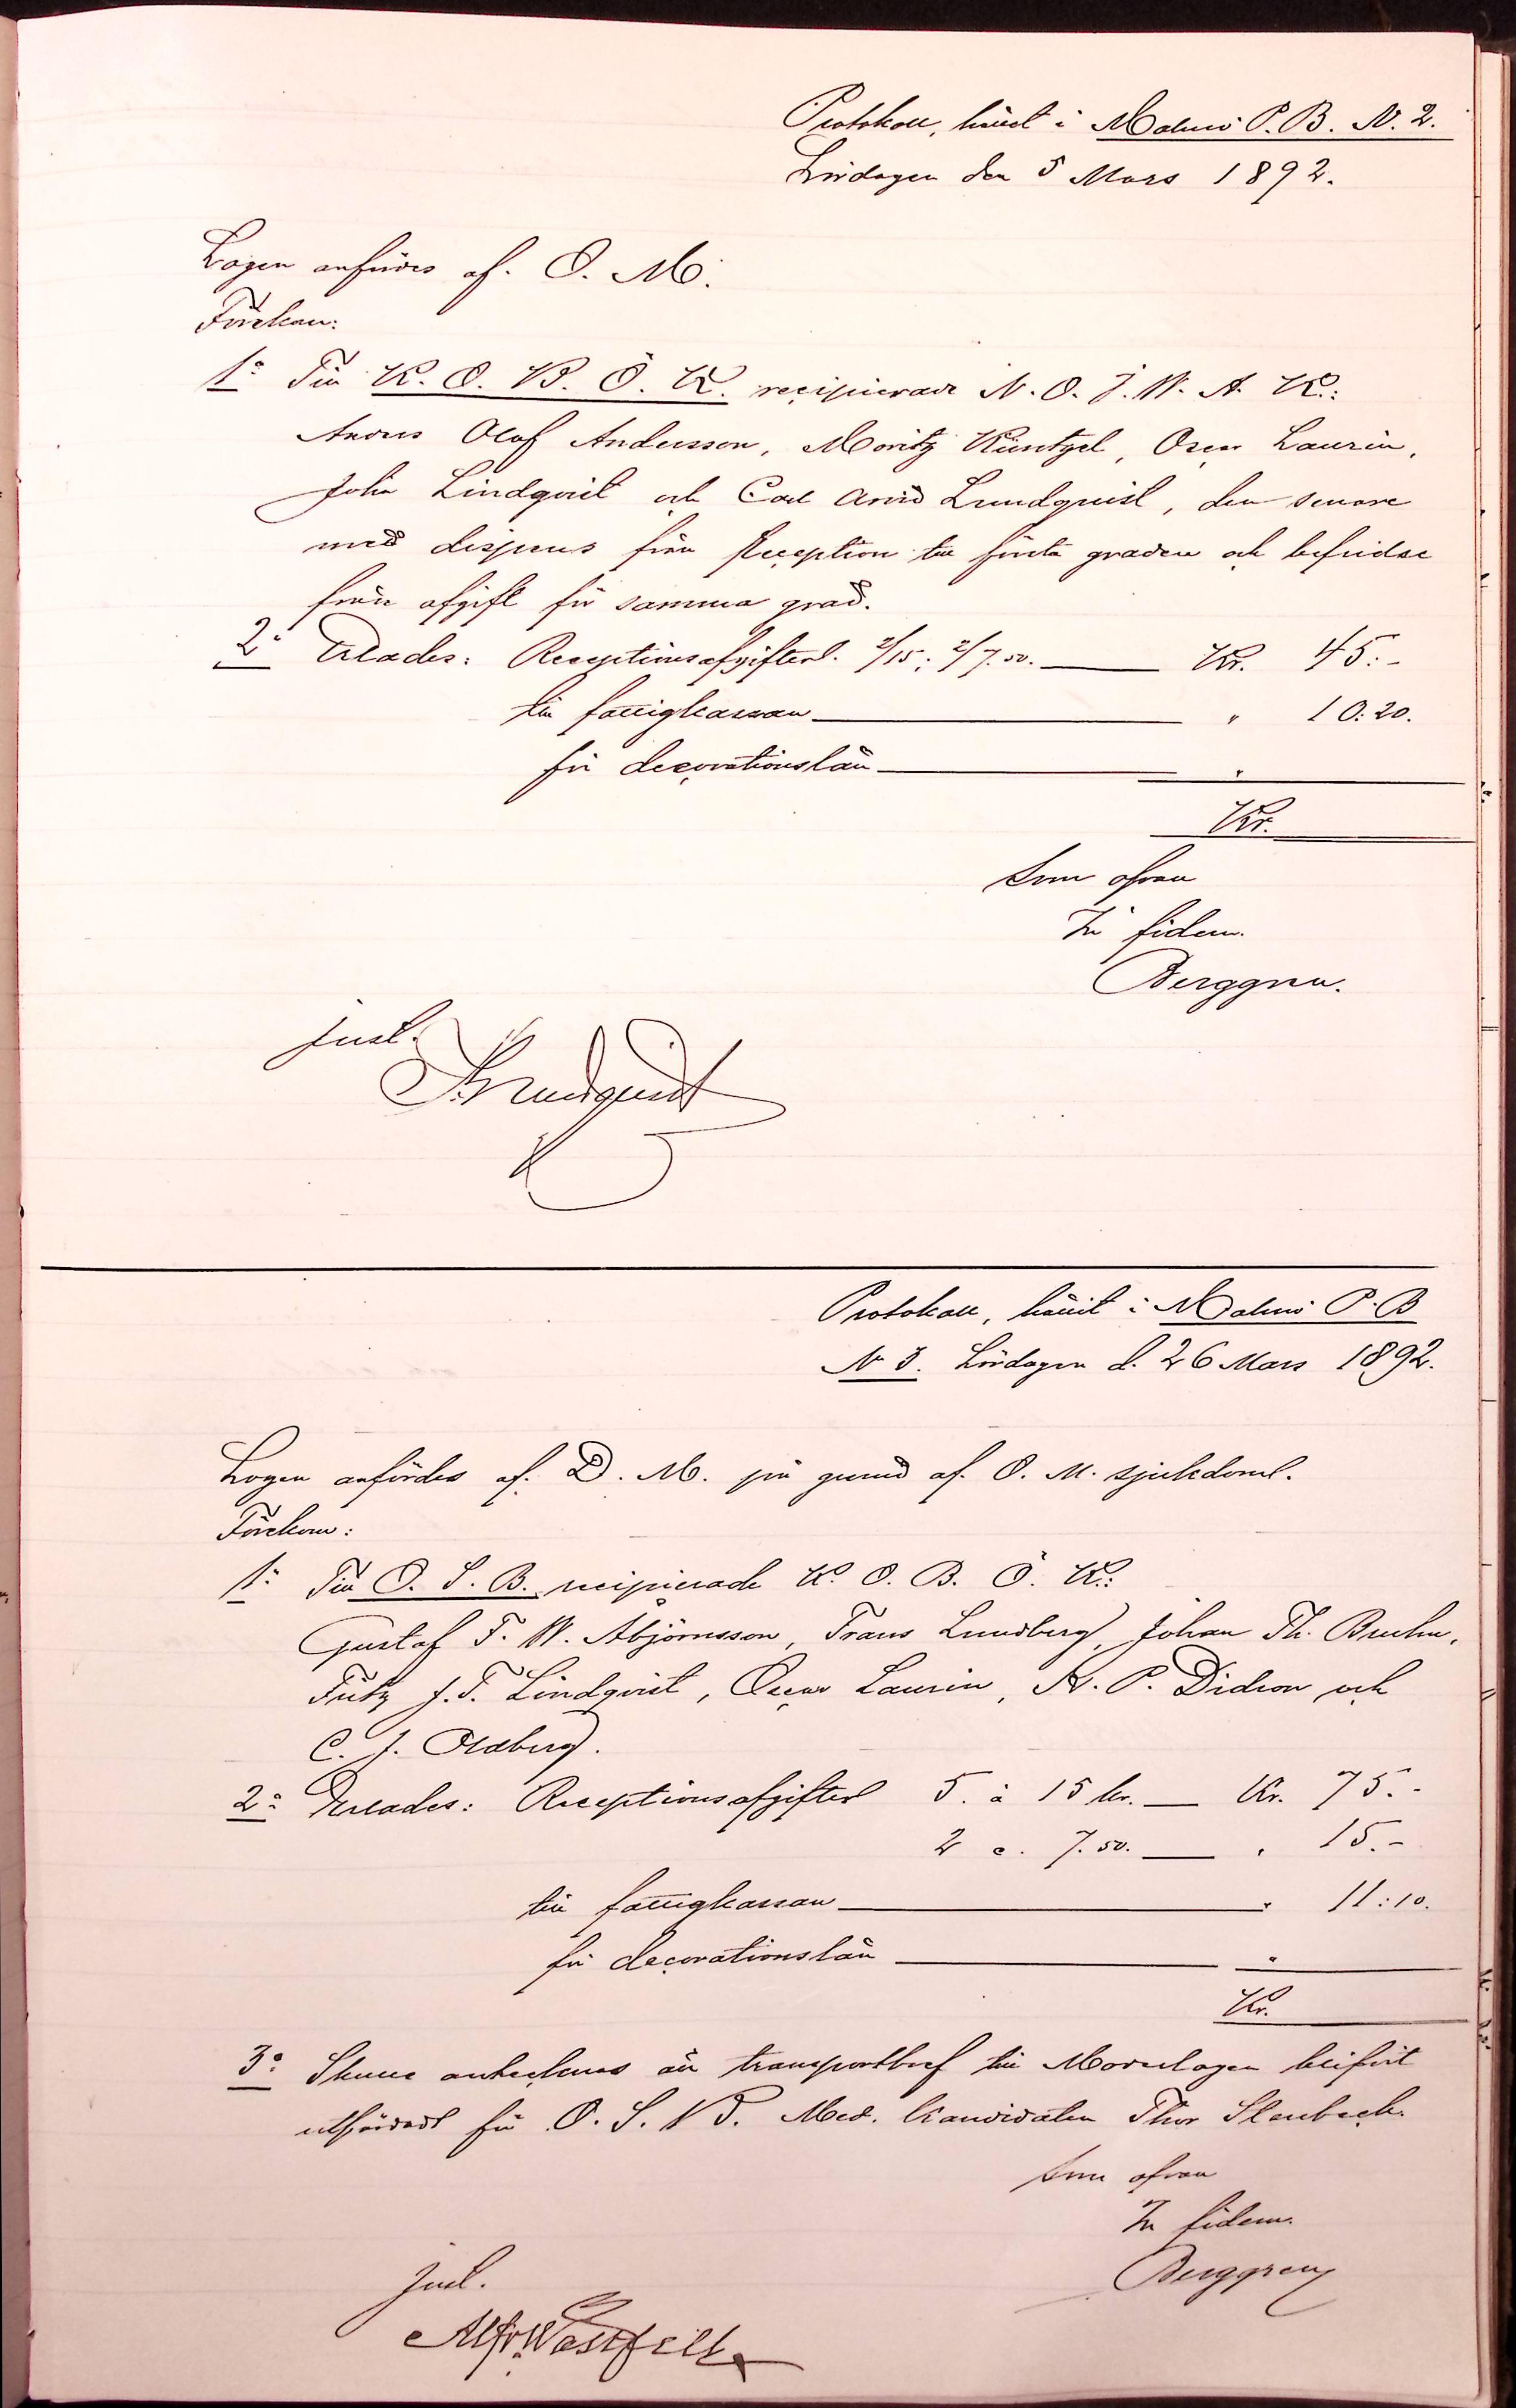 Protokoll, hållet i Malmö P. B. N. 2.
Lördagen den 5 Mars 1892.
Logen anfördes af. O. M.
Förekom:
1o Till K. O. B. Ö. K. recipierade N. O. J. W. A. K.:
Anders Olof Andersson, Moritz Küntzel, Oscar Laurin,
John Lindqvist och Carl Arvid Lundquist, den senare
med dispens från Reception till första graden och befrielse
från afgift för samma grad.
2o Erlades: Receptionsafgifter. 2/15; 2/7.50. Kr. 45:-
till fattigkassan " 10:20.
för decorationslån "
Kr.
Som ofvan
In fidem.
Berggren.
Just.
Protokoll, hållit i Malmö P. B
N 3. Lördagen d. 26 Mars 1892.
Logen anfördes af. D. M. på grund af. O. M. sjukdom.
Förekom:
1o Till O. S. B. recipierade K. O. B. Ö. K.:
Gustaf F. W. Abjörnsson, Frans Lundberg, Johan Th. Bruhn,
Fritz J. F. Lindqvist, Oscar Laurin, A. P. Didron och
C. J. Oldberg.
2o Erlades: Receptionsafgifter 5. à 15 kr. Kr. 75.-
2 à. 7.50. " 15.-
till fattigkassan " 11:10.
för decorationslån "
Kr.
3o Skulle antecknas att transportbref till Moderlogen blifvit
utfärdadt för O. S. B. Med. Kandidaten Thor Stenbeck.
Som ofvan
In fidem.
Berggren
Just.
Alfr. Westfelt